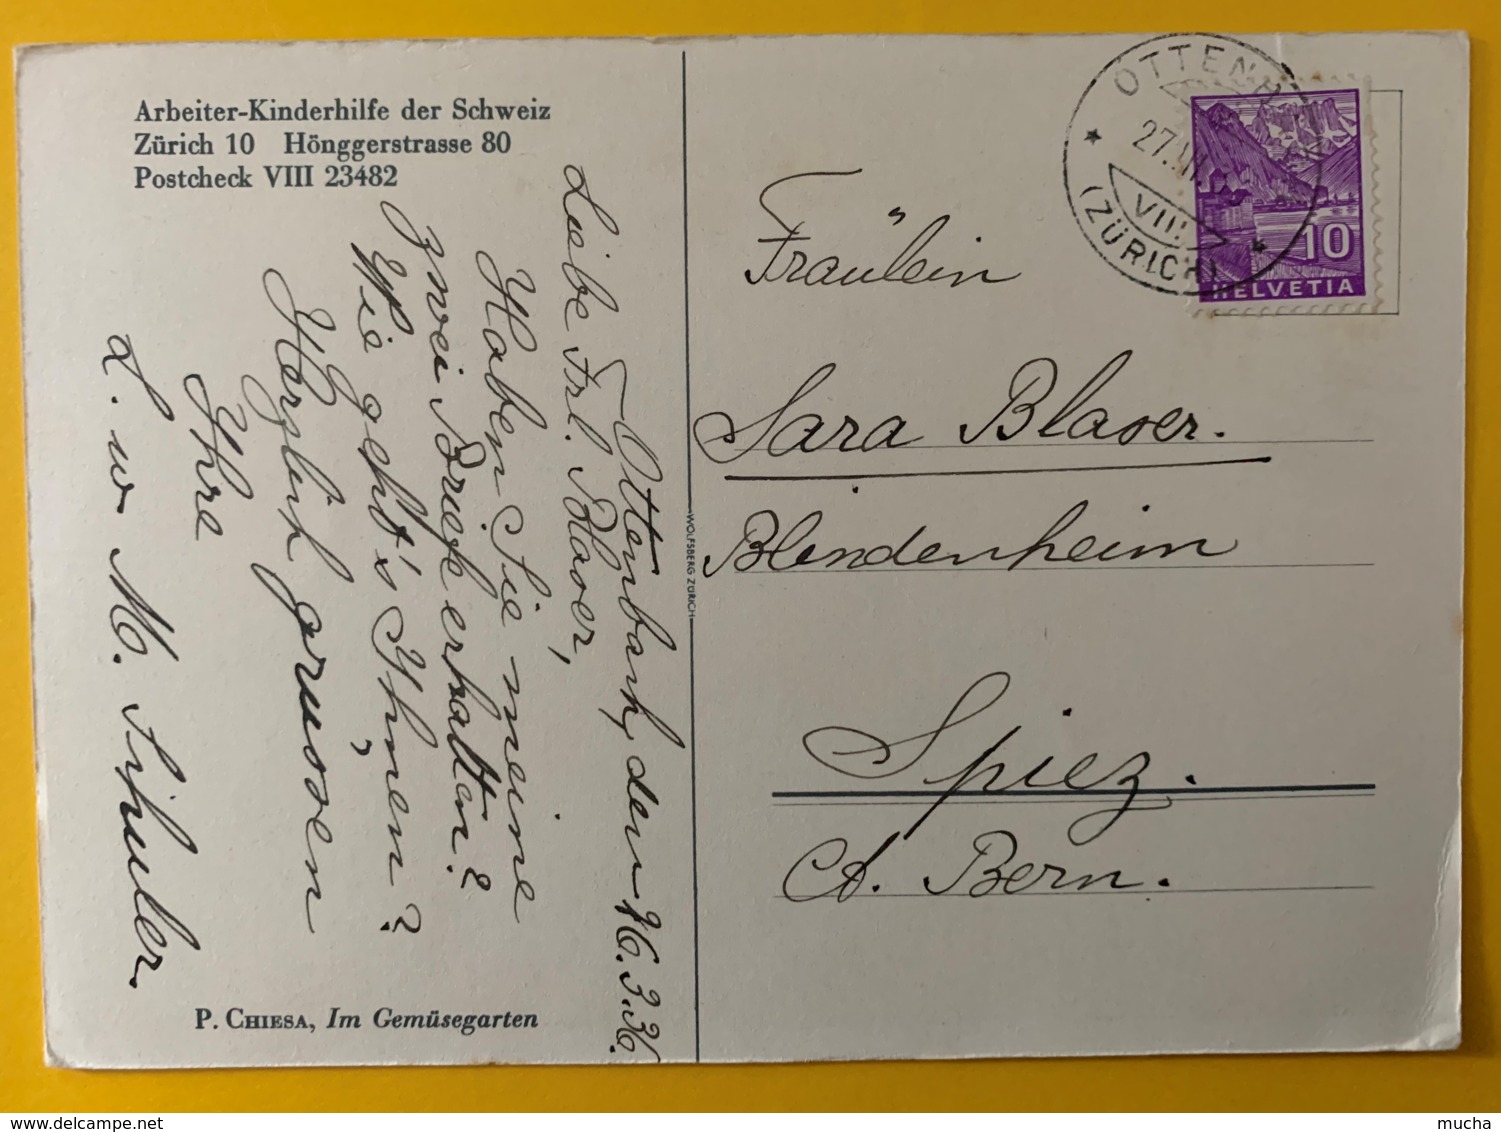 Arbeiter-Kinderhilfe der Schweiz
Zürich 10 Hönggerstrasse 80
Postcheck VIII 23482
Ottenbach, den 26.3.36.
Liebe Frl. Blaser,
Haben Sie meine
zwei Briefe erhalten?
Wie geht's Ihnen?
Herzlich grussen
Ihre
L. u. M. Schuler.
P. CHIESA, Im Gemüsegarten
WOLFSBERG ZÜRICH
OTTENB
27.
VIII
(ZÜRICH)
10
HELVETIA
Fräulein
Sara Blaser.
Blindenheim
Spiez.
Ct. Bern.
mucha